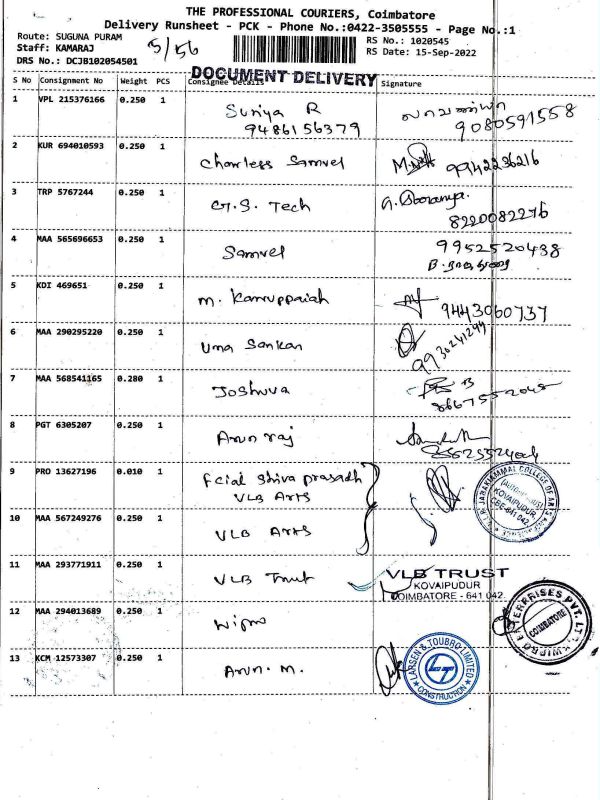 THE PROFESSIONAL COURIERS, Coimbatore
Delivery Runsheet - PCK - Phone No.:0422-3505555 - Page No.:1
Route: SUGUNA PURAM
Staff: KAMARAJ
DRS No.: DCJB102054501
5/56
RS No.: 1020545
RS Date: 15-Sep-2022
DOCUMENT DELIVERY
S No Consignment No Weight PCS Consignee Details Signature
1 VPL 215376166 0.250 1 Suriya R
9486156379 9080591558
2 KUR 694010593 0.250 1 Charless Samvel 9942236216
3 TRP 5767244 0.250 1 G.S. Tech
8220082276
4 MAA 565696653 0.250 1 Samvel 9952520438
5 KDI 469651 0.250 1 M. Karruppaiah 9443060737
6 MAA 290295220 0.250 1 Uma Sankar 9930241294
7 MAA 568541165 0.280 1 Joshuva
8 PGT 6305207 0.250 1 Arun raj
9 PRO 13627196 0.010 1 Fcial Shiva prasadh
VLB Arts
10 MAA 567249276 0.250 1 VLB Arts
KOVAIPUDUR
CBE-641 042
11 MAA 293771911 0.250 1 VLB Trust
VLB TRUST
KOVAIPUDUR
COIMBATORE - 641 042.
12 MAA 294013689 0.250 1 Wipro
COIMBATORE
13 KCM 12573307 0.250 1 Arun. M.
LARSEN & TOUBRO LIMITED
CONSTRUCTION